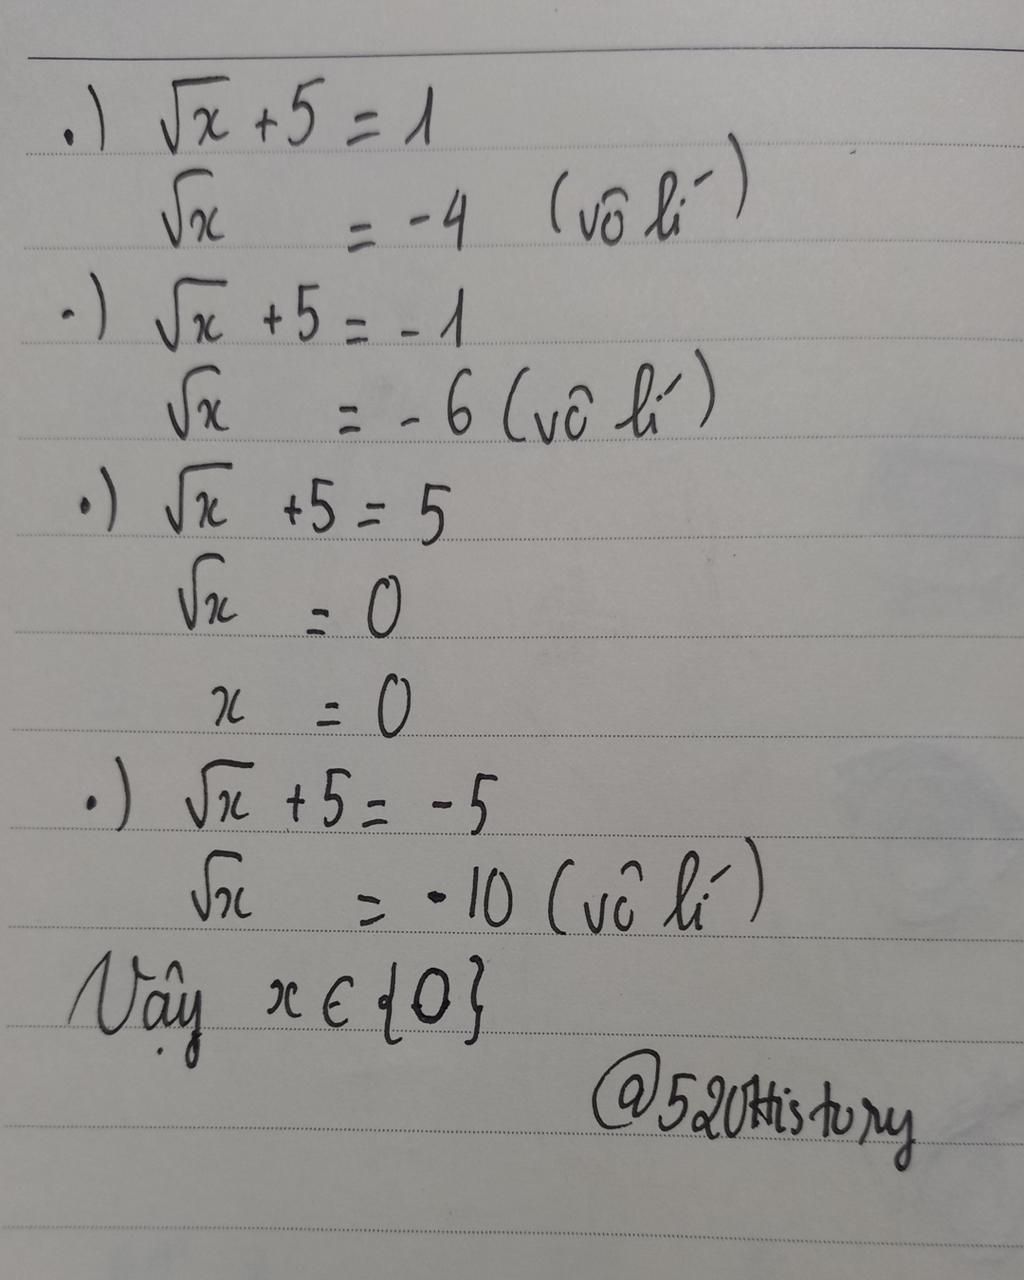 .) √x + 5 = 1
√x = -4 (vô lí)
.) √x + 5 = -1
√x = -6 (vô lí)
.) √x + 5 = 5
√x = 0
x = 0
.) √x + 5 = -5
√x = -10 (vô lí)
Vậy x ∈ {0}
@520History